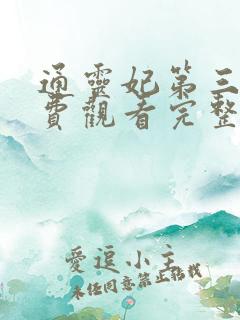 通靈妃第三
費觀看完整
愛逗小主
未经同意禁止转载